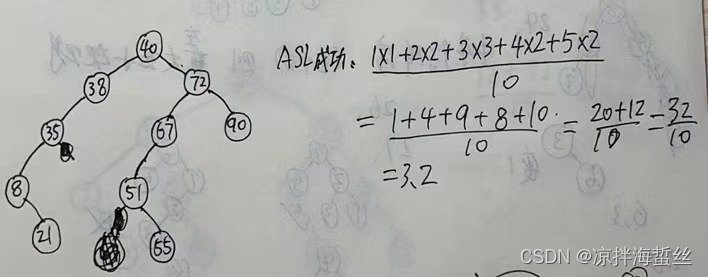 40
38 72
35 67 90
8 51
21 55
ASL成功: 1x1+2x2+3x3+4x2+5x2
10
= 1+4+9+8+10. = 20+12 = 32
10 10 10
=3.2
CSDN @凉拌海蜇丝